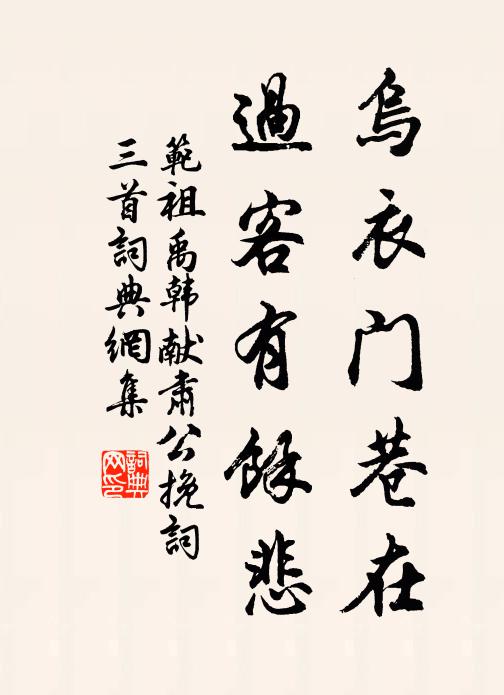 烏衣門巷在
過客有餘悲
範祖禹韩献肃公挽詞
三首詞典網集
詞典
网印